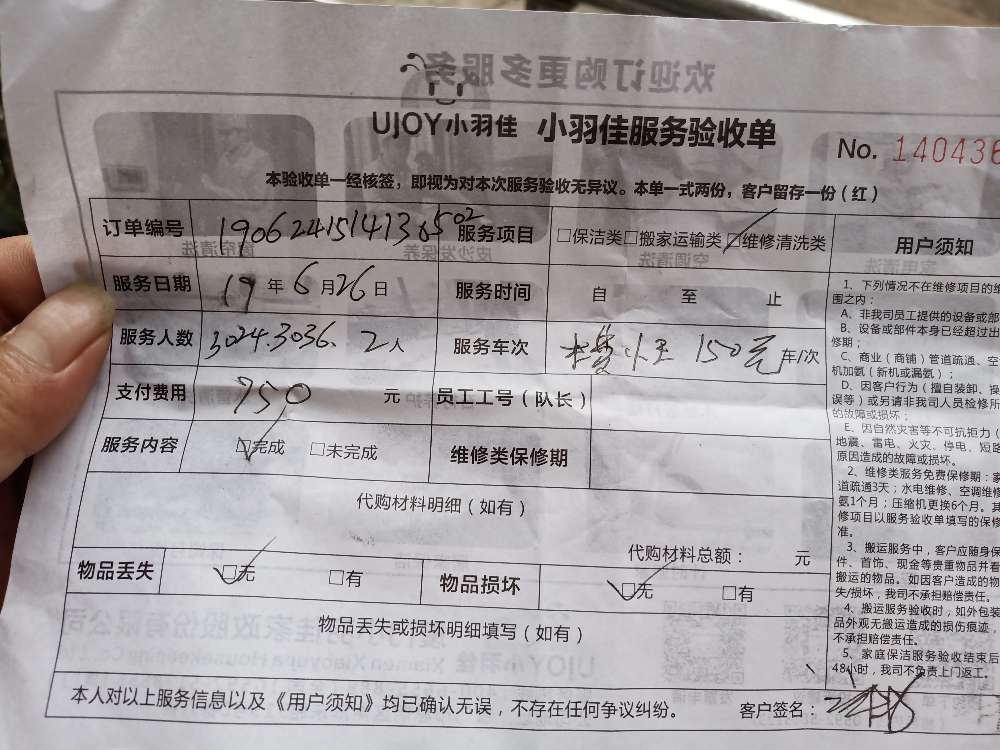 欢迎订购更多服务
UJOY小羽佳 小羽佳服务验收单
No. 140436
本验收单一经核签，即视为对本次服务验收无异议。本单一式两份，客户留存一份（红）
订单编号 服务项目 □保洁类□搬家运输类□维修清洗类
服务日期 19年6月26日 服务时间 自 至 止
服务人数 3024.3036. 2人 服务车次 150元 车/次
支付费用 750 元 员工工号（队长）
服务内容 □完成 □未完成 维修类保修期
代购材料明细（如有）
代购材料总额： 元
物品丢失 □无 □有 物品损坏 □无 □有
物品丢失或损坏明细填写（如有）
本人对以上服务信息以及《用户须知》均已确认无误，不存在任何争议纠纷。 客户签名：
用户须知
1、下列情况不在维修项目的维
围之内：
A、非我司员工提供的设备或部
B、设备或部件本身已经超过出
修期；
C、商业（商铺）管道疏通、空
机加氨（新机或漏氨）；
D、因客户行为（擅自装卸、操
误等）或另请非我司人员检修所
的故障或损坏；
E、因自然灾害等不可抗拒力（
地震、雷电、火灾、停电、短路
原因造成的故障或损坏。
2、维修类服务免费保修期：家
道疏通3天；水电维修、空调维修
氨1个月；压缩机更换6个月。其
修项目以服务验收单填写的保修
准。
3、搬运服务中，客户应随身保
件、首饰、现金等贵重物品并看
搬运的物品。如因客户造成的物
失/损坏，我司不承担赔偿责任。
4、搬运服务验收时，如外包装
品外观无搬运造成的损伤痕迹，
不承担赔偿责任。
5、家庭保洁服务验收结束后
48小时，我司不负责上门返工。